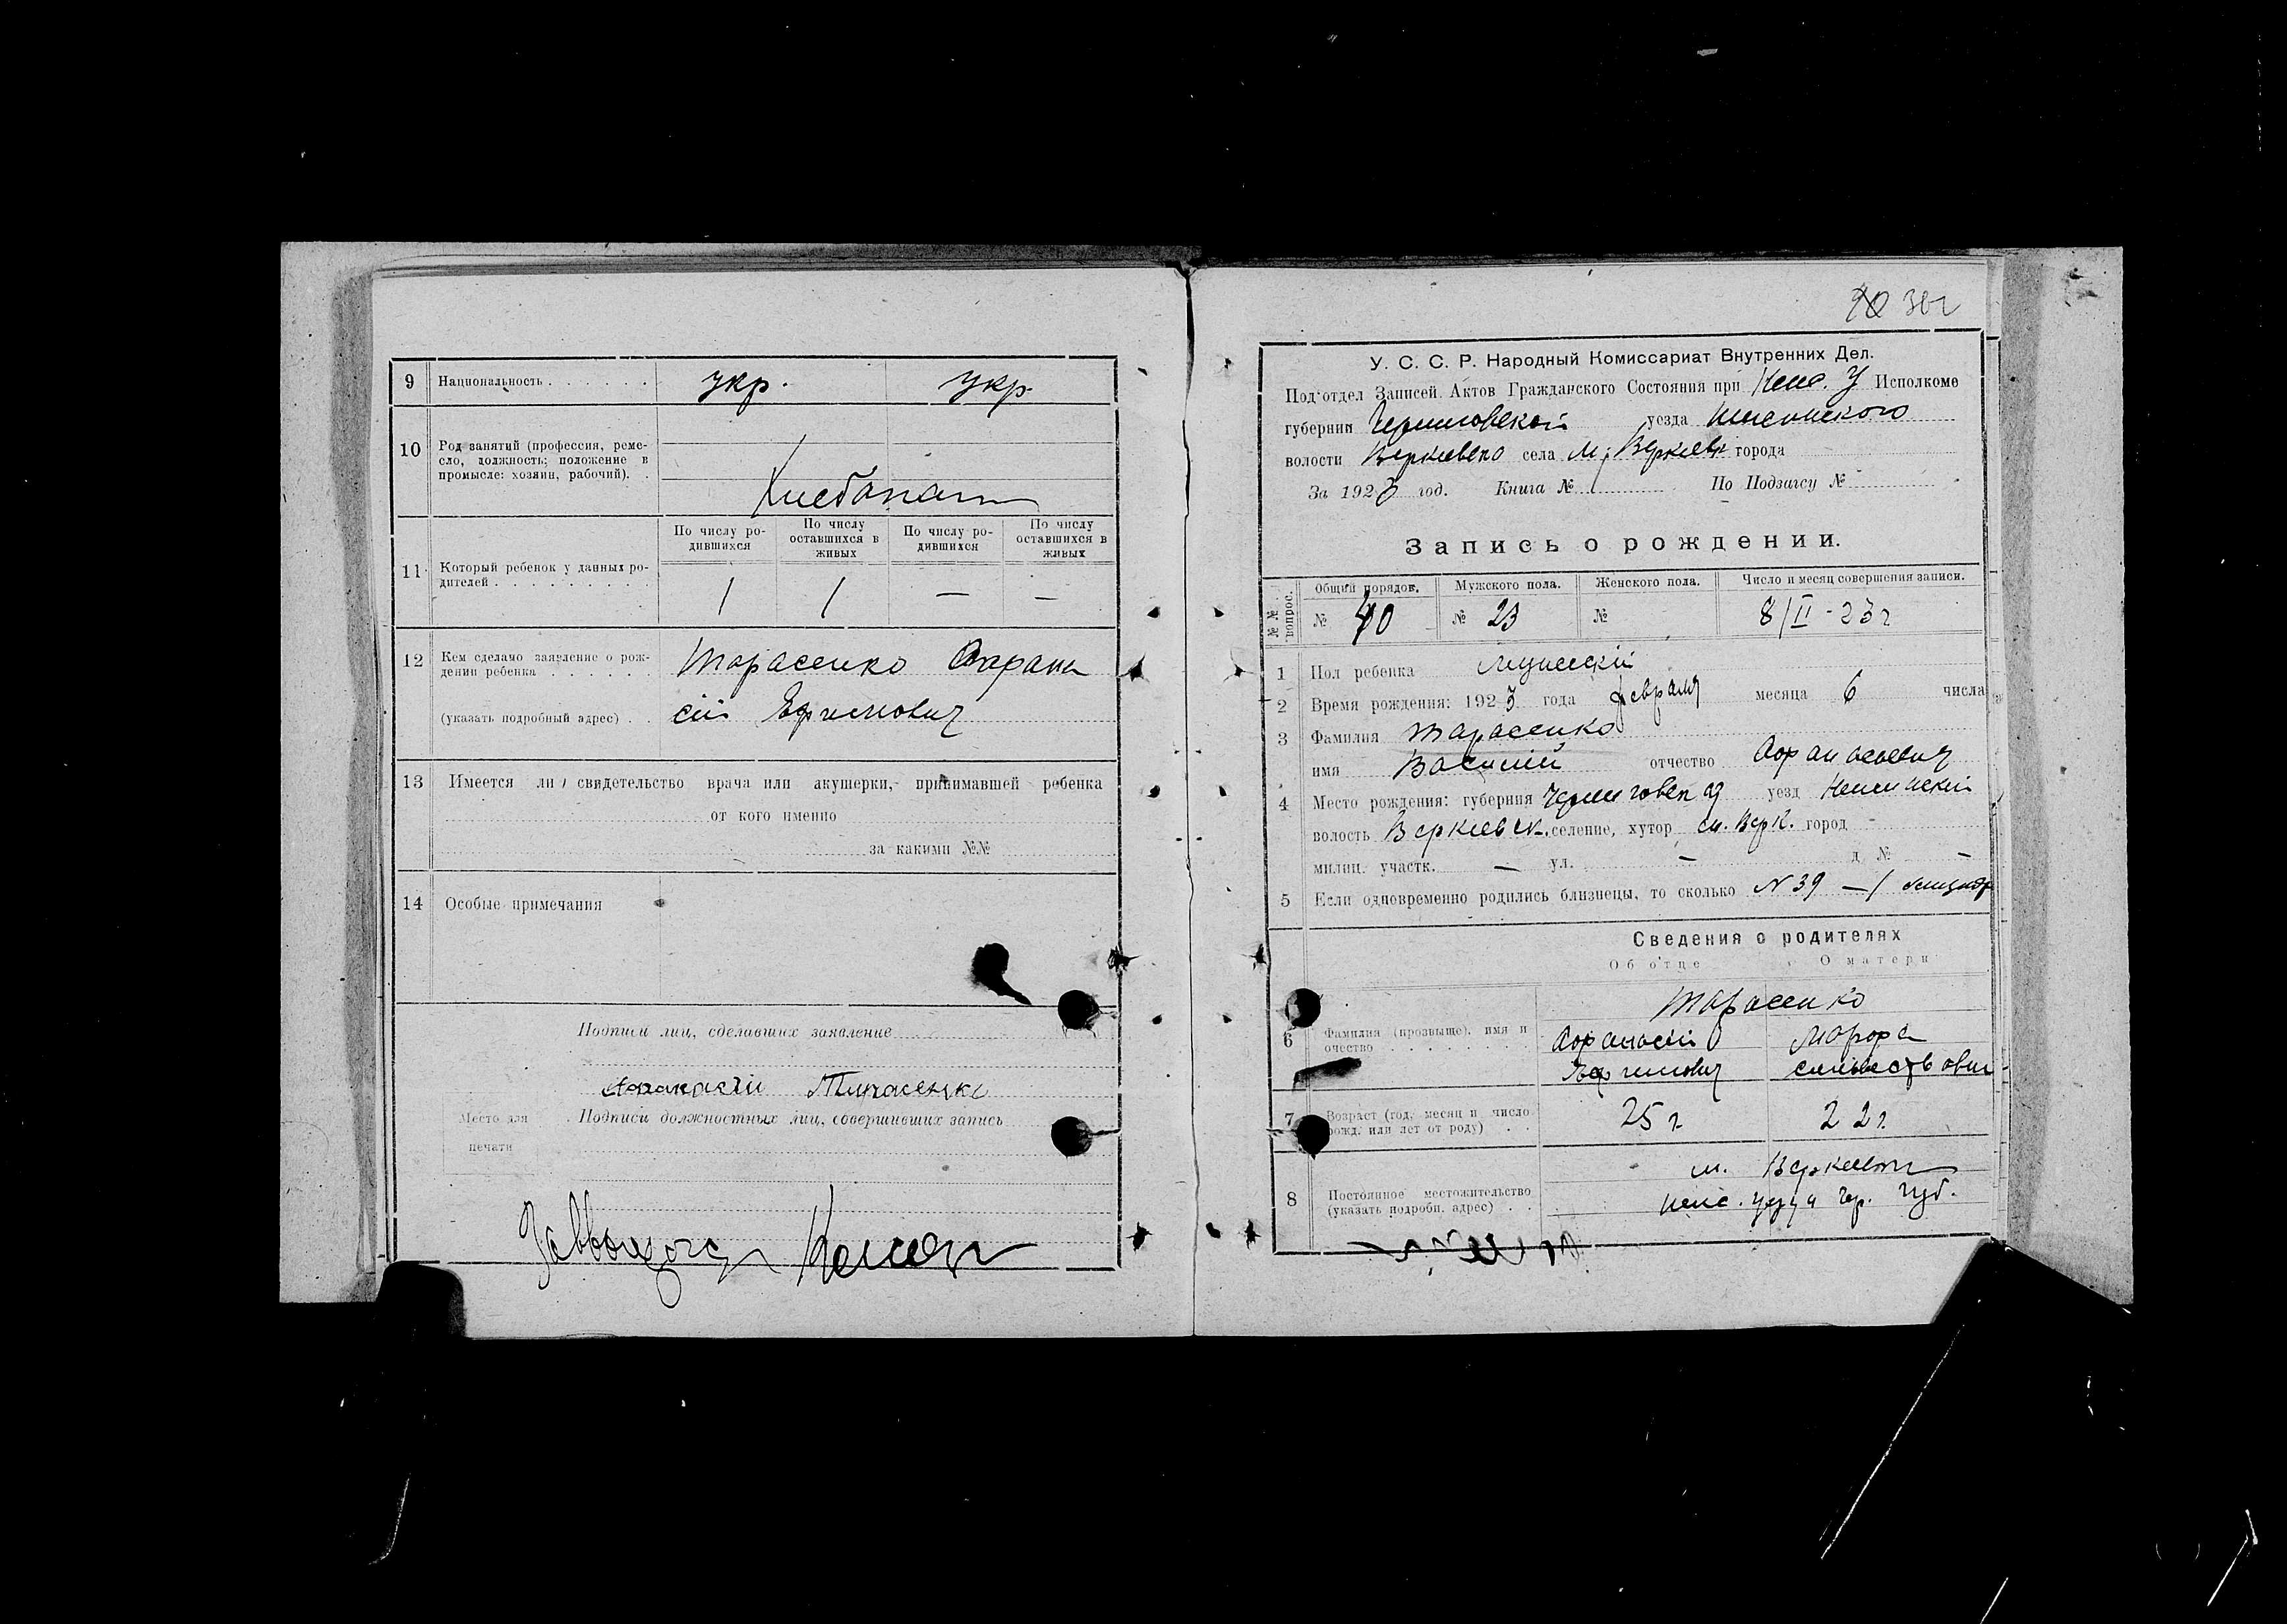 9 Национальность укр. укр.
10 Род занятий (профессия, реме-
сло, должность; положение в
промысле: хозяин, рабочий).
Хлебопаш
11 Который ребенок у данных ро-
дителей
По числу ро-
дившихся
По числу
оставшихся в
живых
По числу ро-
дившихся
По числу
оставшихся в
живых
1 1 — —
12 Кем сделано заявление о рож-
дении ребенка Тарасенко Афрана
(указать подробный адрес) сій Ефимович
13 Имеется ли свидетельство врача или акушерки, принимавшей ребенка
от кого именно
за какими №№
14 Особые примечания
Подписи лиц, сделавших заявление
Тарасенко
Подписи должностных лиц, совершивших запись
Место для
печати
30г
У. С. С. Р. Народный Комиссариат Внутренних Дел.
Под'отдел Записей Актов Гражданского Состояния при Неж. У Исполкоме
губернии Черниговской уезда Неженского
волости Веркиевско села М. Веркиевк города
За 1923 год. Книга № 1 По Подзагсу №
Запись о рождении.
№№ вопрос.
Общий порядов. Мужского пола. Женского пола. Число и месяц совершения записи.
№ 40 № 23 № 8/II-23г
1 Пол ребенка Мужескій
2 Время рождения: 1923 года февраля месяца 6 числа
3 Фамилия Тарасенко
имя Василий отчество Афанасьевич
4 Место рождения: губерния Черниговская уезд Неженскій
волость Веркиевск. селение, хутор м. Верк. город -
милиц. участк. — ул. — д № —
5 Если одновременно родились близнецы, то сколько N 39 — 1
Сведения о родителях
Об отце О матери
Тарасенко
6 Фамилия (прозвыще), имя и
очество
Афанасий
Ефимович
Марфа
Сильвестровн
7 Возраст (год, месяц и число
рожд. или лет от роду) 25 г. 22 г.
м. Веркиевка
8 Постоянное местожительство
(указать подробн. адрес) Неж. уезда Чер. Губ.